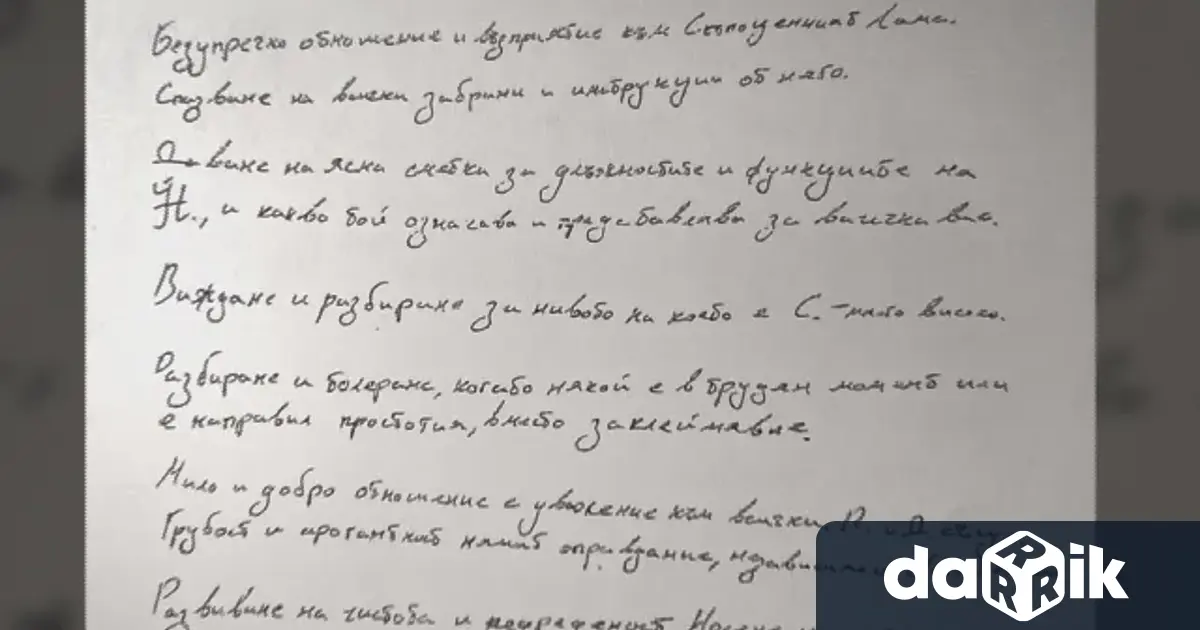 Безупречно отношение и възприятие към Скъпоценният Лама.
Спазване на всички забрани и инструкции от него.
Даване на ясна сметка за длъжностите и функциите на
Й., и какво той означава и представлява за всички вас.
Виждане и разбиране за нивото на което е С. - много високо.
Разбиране и толеранс, когато някой е в труден момент или
е направил простотия, вместо заклеймяване.
Мило и добро отношение с уважение към всички
Грубост и арогантност нямат оправдание,
Развиване на чистота и
darik